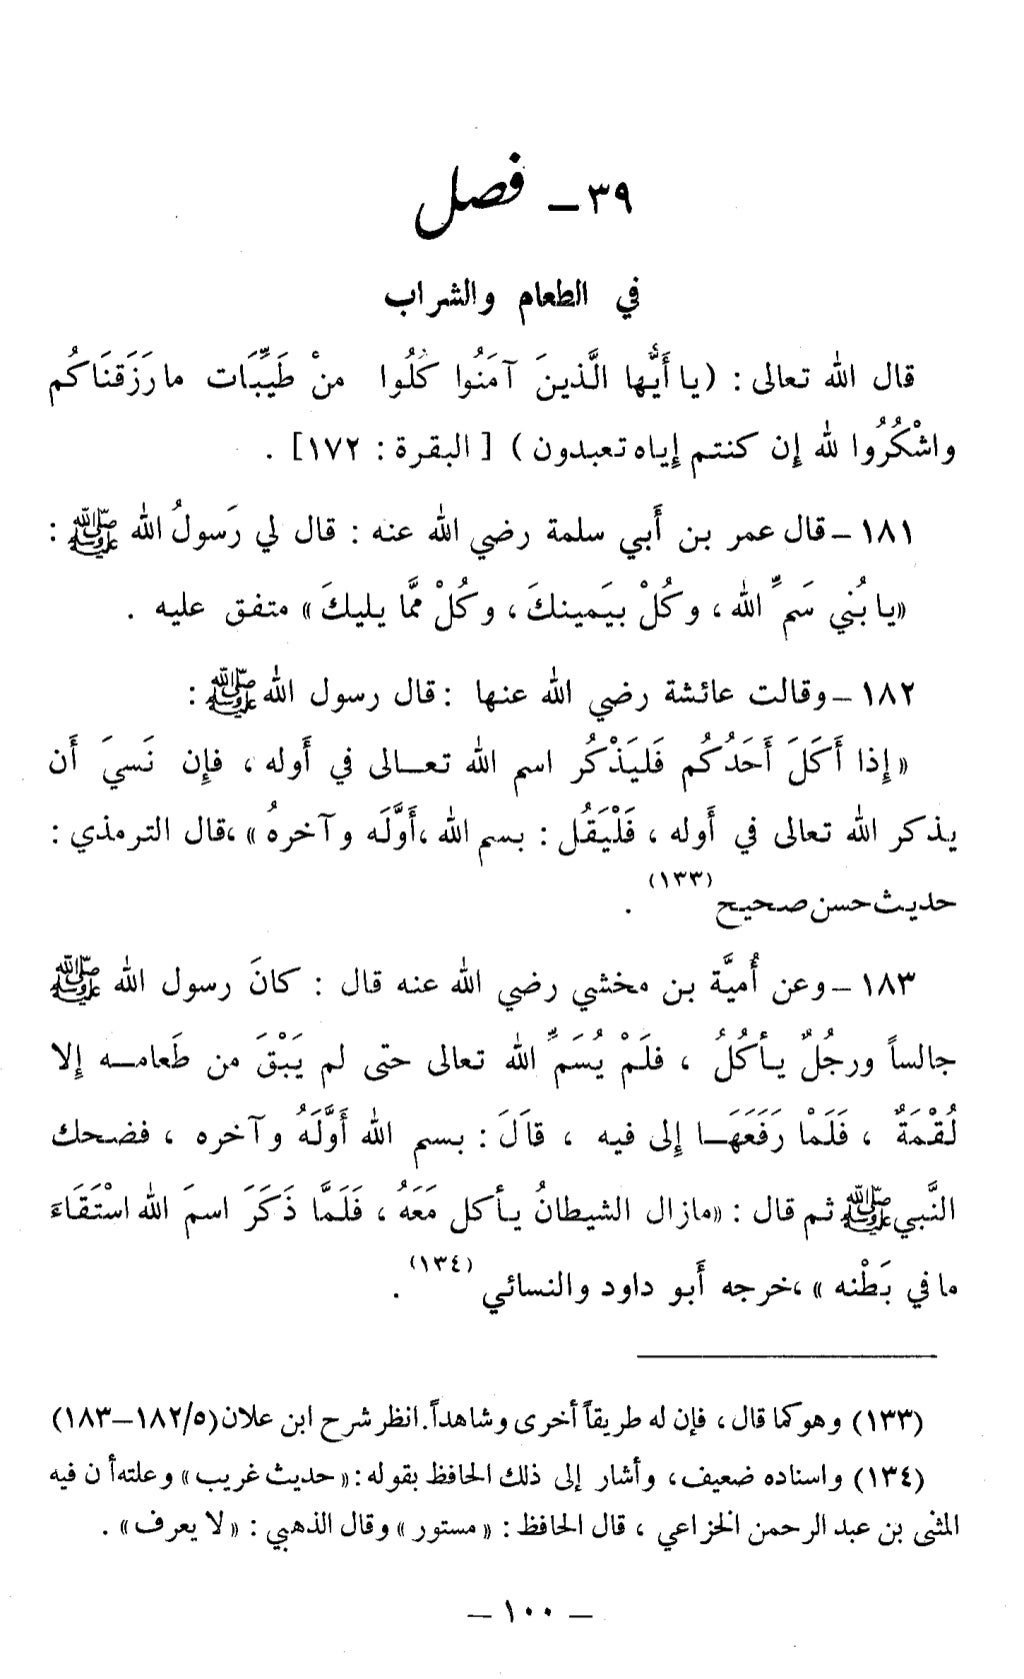 ٣٩ ـ فصل
في الطعام والشراب
قال الله تعالى : (يا أَيُّها الَّذينَ آمَنُوا كُلُوا منْ طَيِّبَات ما رَزَقنَاكُم
واشْكُرُوا لله إِن كنتم إِياه تعبدون) [البقرة : ١٧٢] .
١٨١ ـ قال عمر بن أَبي سلمة رضي الله عنه : قال لي رَسولُ الله ﷺ :
«يا بُني سَمِّ الله ، وكُلْ بيَمينكَ ، وكُلْ ممَّا يليكَ» متفق عليه .
١٨٢ ـ وقالت عائشة رضي الله عنها : قال رسول الله ﷺ :
« إِذا أَكَلَ أَحَدُكُم فَليَذْكُر اسم الله تعـالى في أَوله ، فإِن نَسيَ أَن
يذكر الله تعالى في أَوله ، فَلْيَقُل : بسم الله ،أَوَّلَه وآخرهُ » ،قال الترمذي :
حديث حسن صحيح (١٣٣) .
١٨٣ ـ وعن أُميَّة بن مخشي رضي الله عنه قال : كانَ رسول الله ﷺ
جالساً ورجُلٌ يـأكُلُ ، فلَمْ يُسَمِّ الله تعالى حتى لم يَبْقَ من طَعامـه إِلا
لُقْمَةٌ ، فَلَمْا رَفَعَهَـا إِلى فيه ، قاَلَ : بسم الله أَوَّلَهُ وآخره ، فضحك
النَّبي ﷺ ثم قال : «مازال الشيطانُ يـأكل مَعَهُ ، فَلَمَّا ذَكَرَ اسمَ الله اسْتَقَاءَ
ما في بَطْنه » ،خرجه أَبو داود والنسائي (١٣٤) .
(١٣٣) وهو كما قال ، فإن له طريقاً أخرى وشاهداً . انظر شرح ابن علان (١٨٢/٥ـ١٨٣)
(١٣٤) واسناده ضعيف ، وأشار إلى ذلك الحافظ بقوله : « حديث غريب » وعلته أن فيه
المثنى بن عبد الرحمن الخزاعي ، قال الحافظ : « مستور » وقال الذهبي : « لا يعرف » .
ـ ١٠٠ ـ